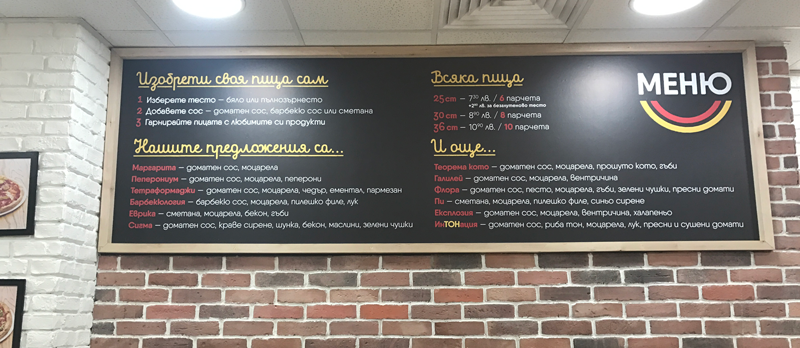 Изобрети своя пица сам
1 Изберете тесто – бяло или пълнозърнесто
2 Добавете сос – доматен сос, барбекю сос или сметана
3 Гарнирайте пицата с любимите си продукти
Нашите предложения са...
Маргарита – доматен сос, моцарела
Пеперониум – доматен сос, моцарела, пеперони
Тетраформаджи – доматен сос, моцарела, чедър, ементал, пармезан
Барбекюлогия – барбекю сос, моцарела, пилешко филе, лук
Еврика – сметана, моцарела, бекон, гъби
Сигма – доматен сос, краве сирене, шунка, бекон, маслини, зелени чушки
Всяка пица
25 cm – 7⁵⁰ лв. / 6 парчета
за безглутеново тесто
30 cm – 8⁹⁰ лв. / 8 парчета
36 cm – 10⁹⁰ лв. / 10 парчета
И още...
Теорема кото – доматен сос, моцарела, прошуто кото, гъби
Галилей – доматен сос, моцарела, вентричина
Флора – доматен сос, песто, моцарела, гъби, зелени чушки, пресни домати
Пи – сметана, моцарела, пилешко филе, синьо сирене
Експлозия – доматен сос, моцарела, вентричина, халапеньо
ИнТОНация – доматен сос, риба тон, моцарела, лук, пресни и сушени домати
МЕНЮ